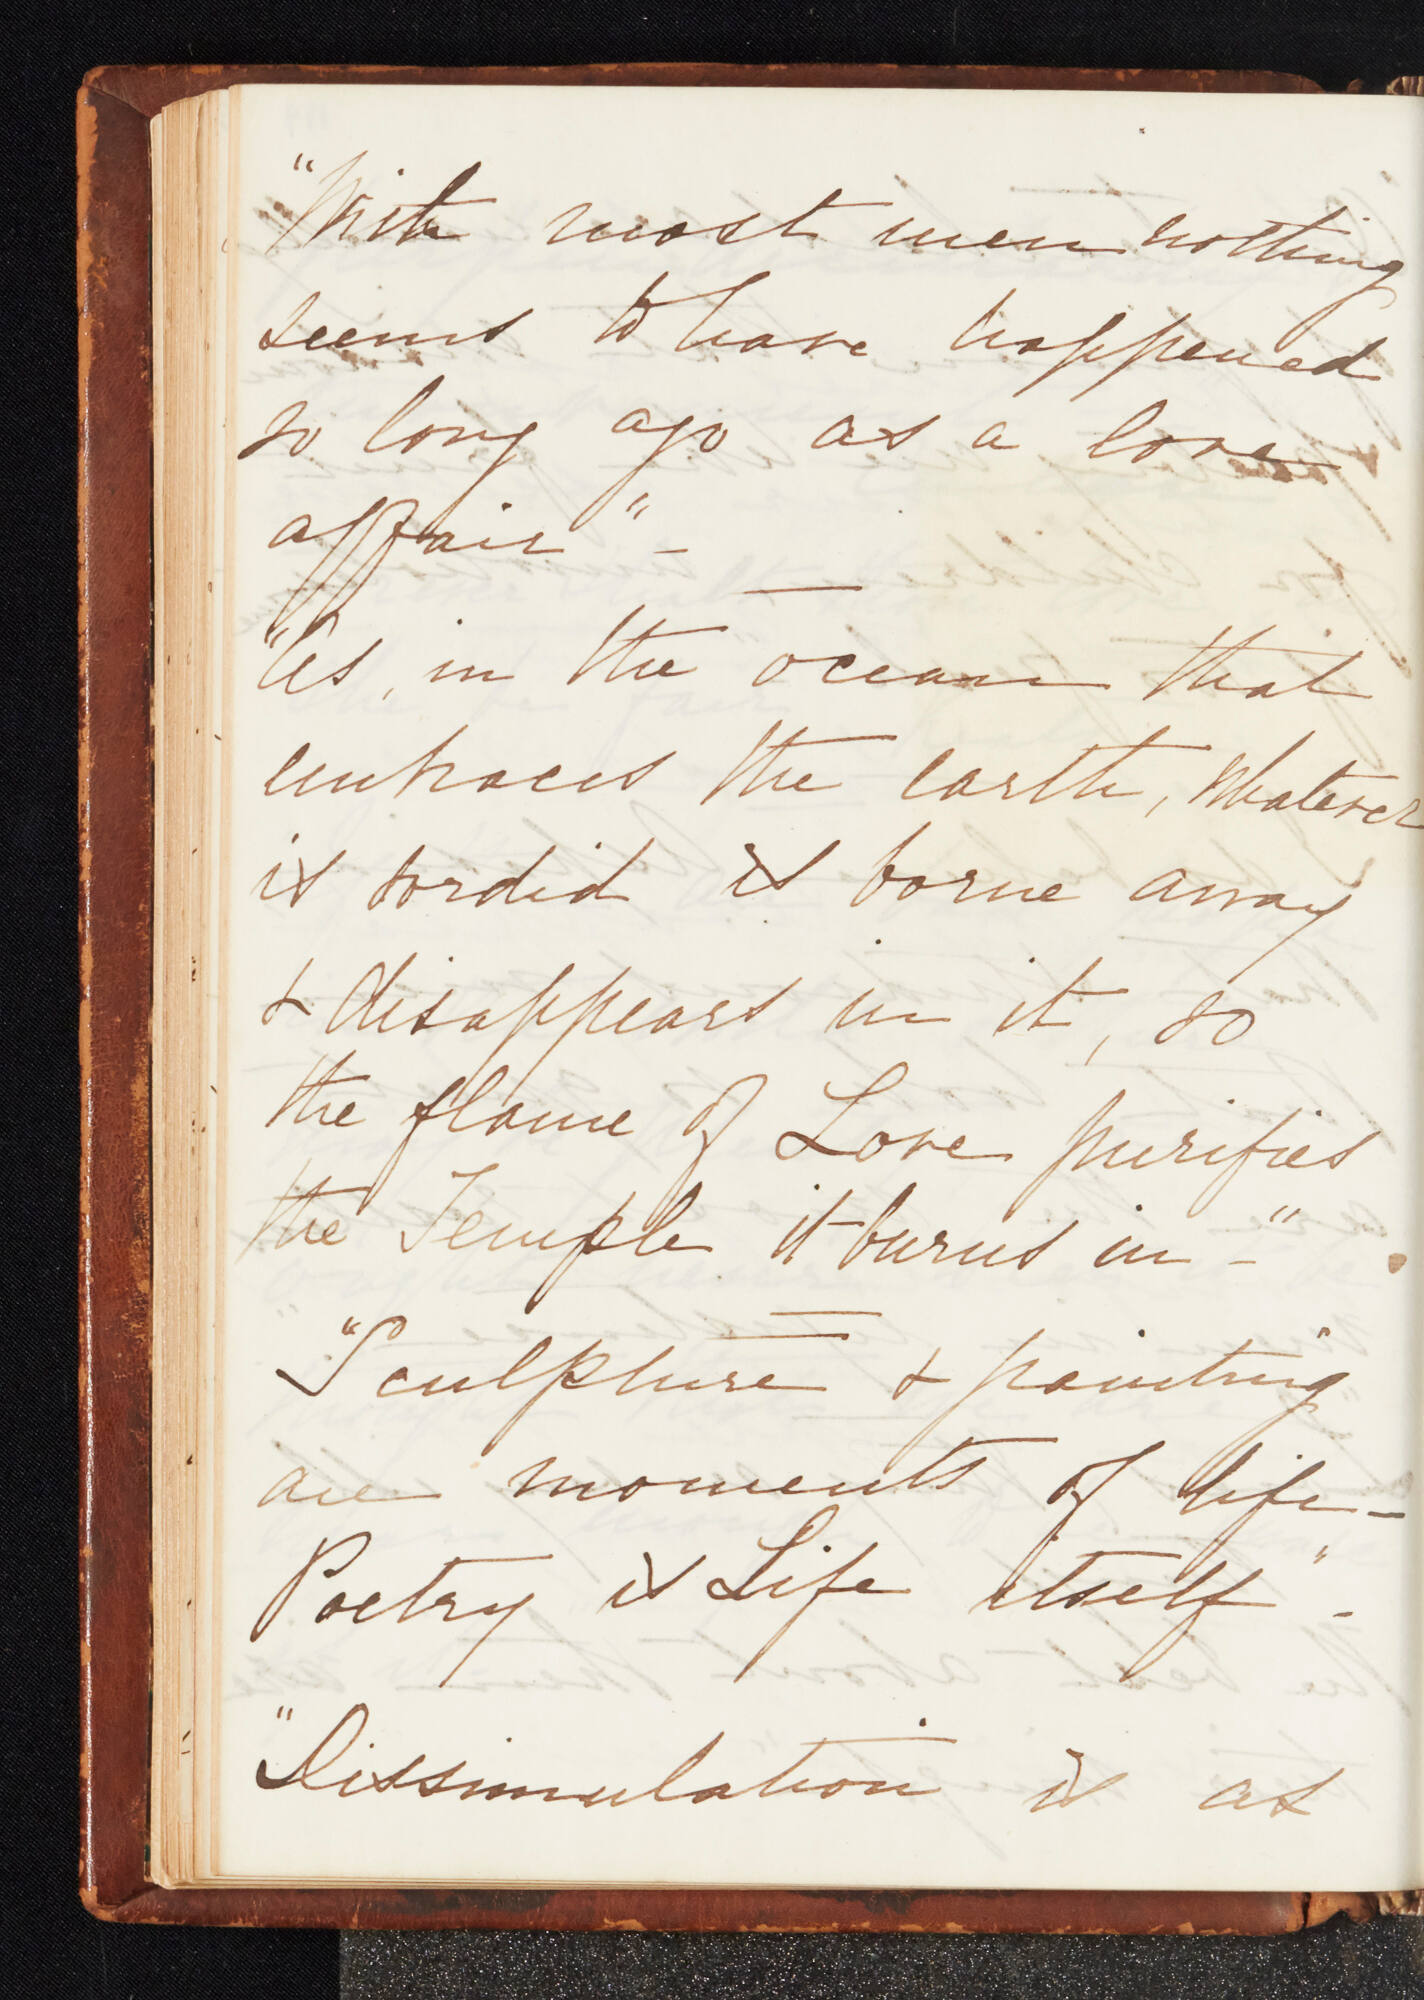 "With most men nothing
seems to have happened
so long ago as a love
affair" -
"As, in the ocean that
embraces the earth, whatever
is sordid is borne away
& disappears in it, so
the flame of Love purifies
the Temple it burns in -"
"Sculpture & painting
are moments of life -
Poetry is Life itself" -
"Dissimulation is as